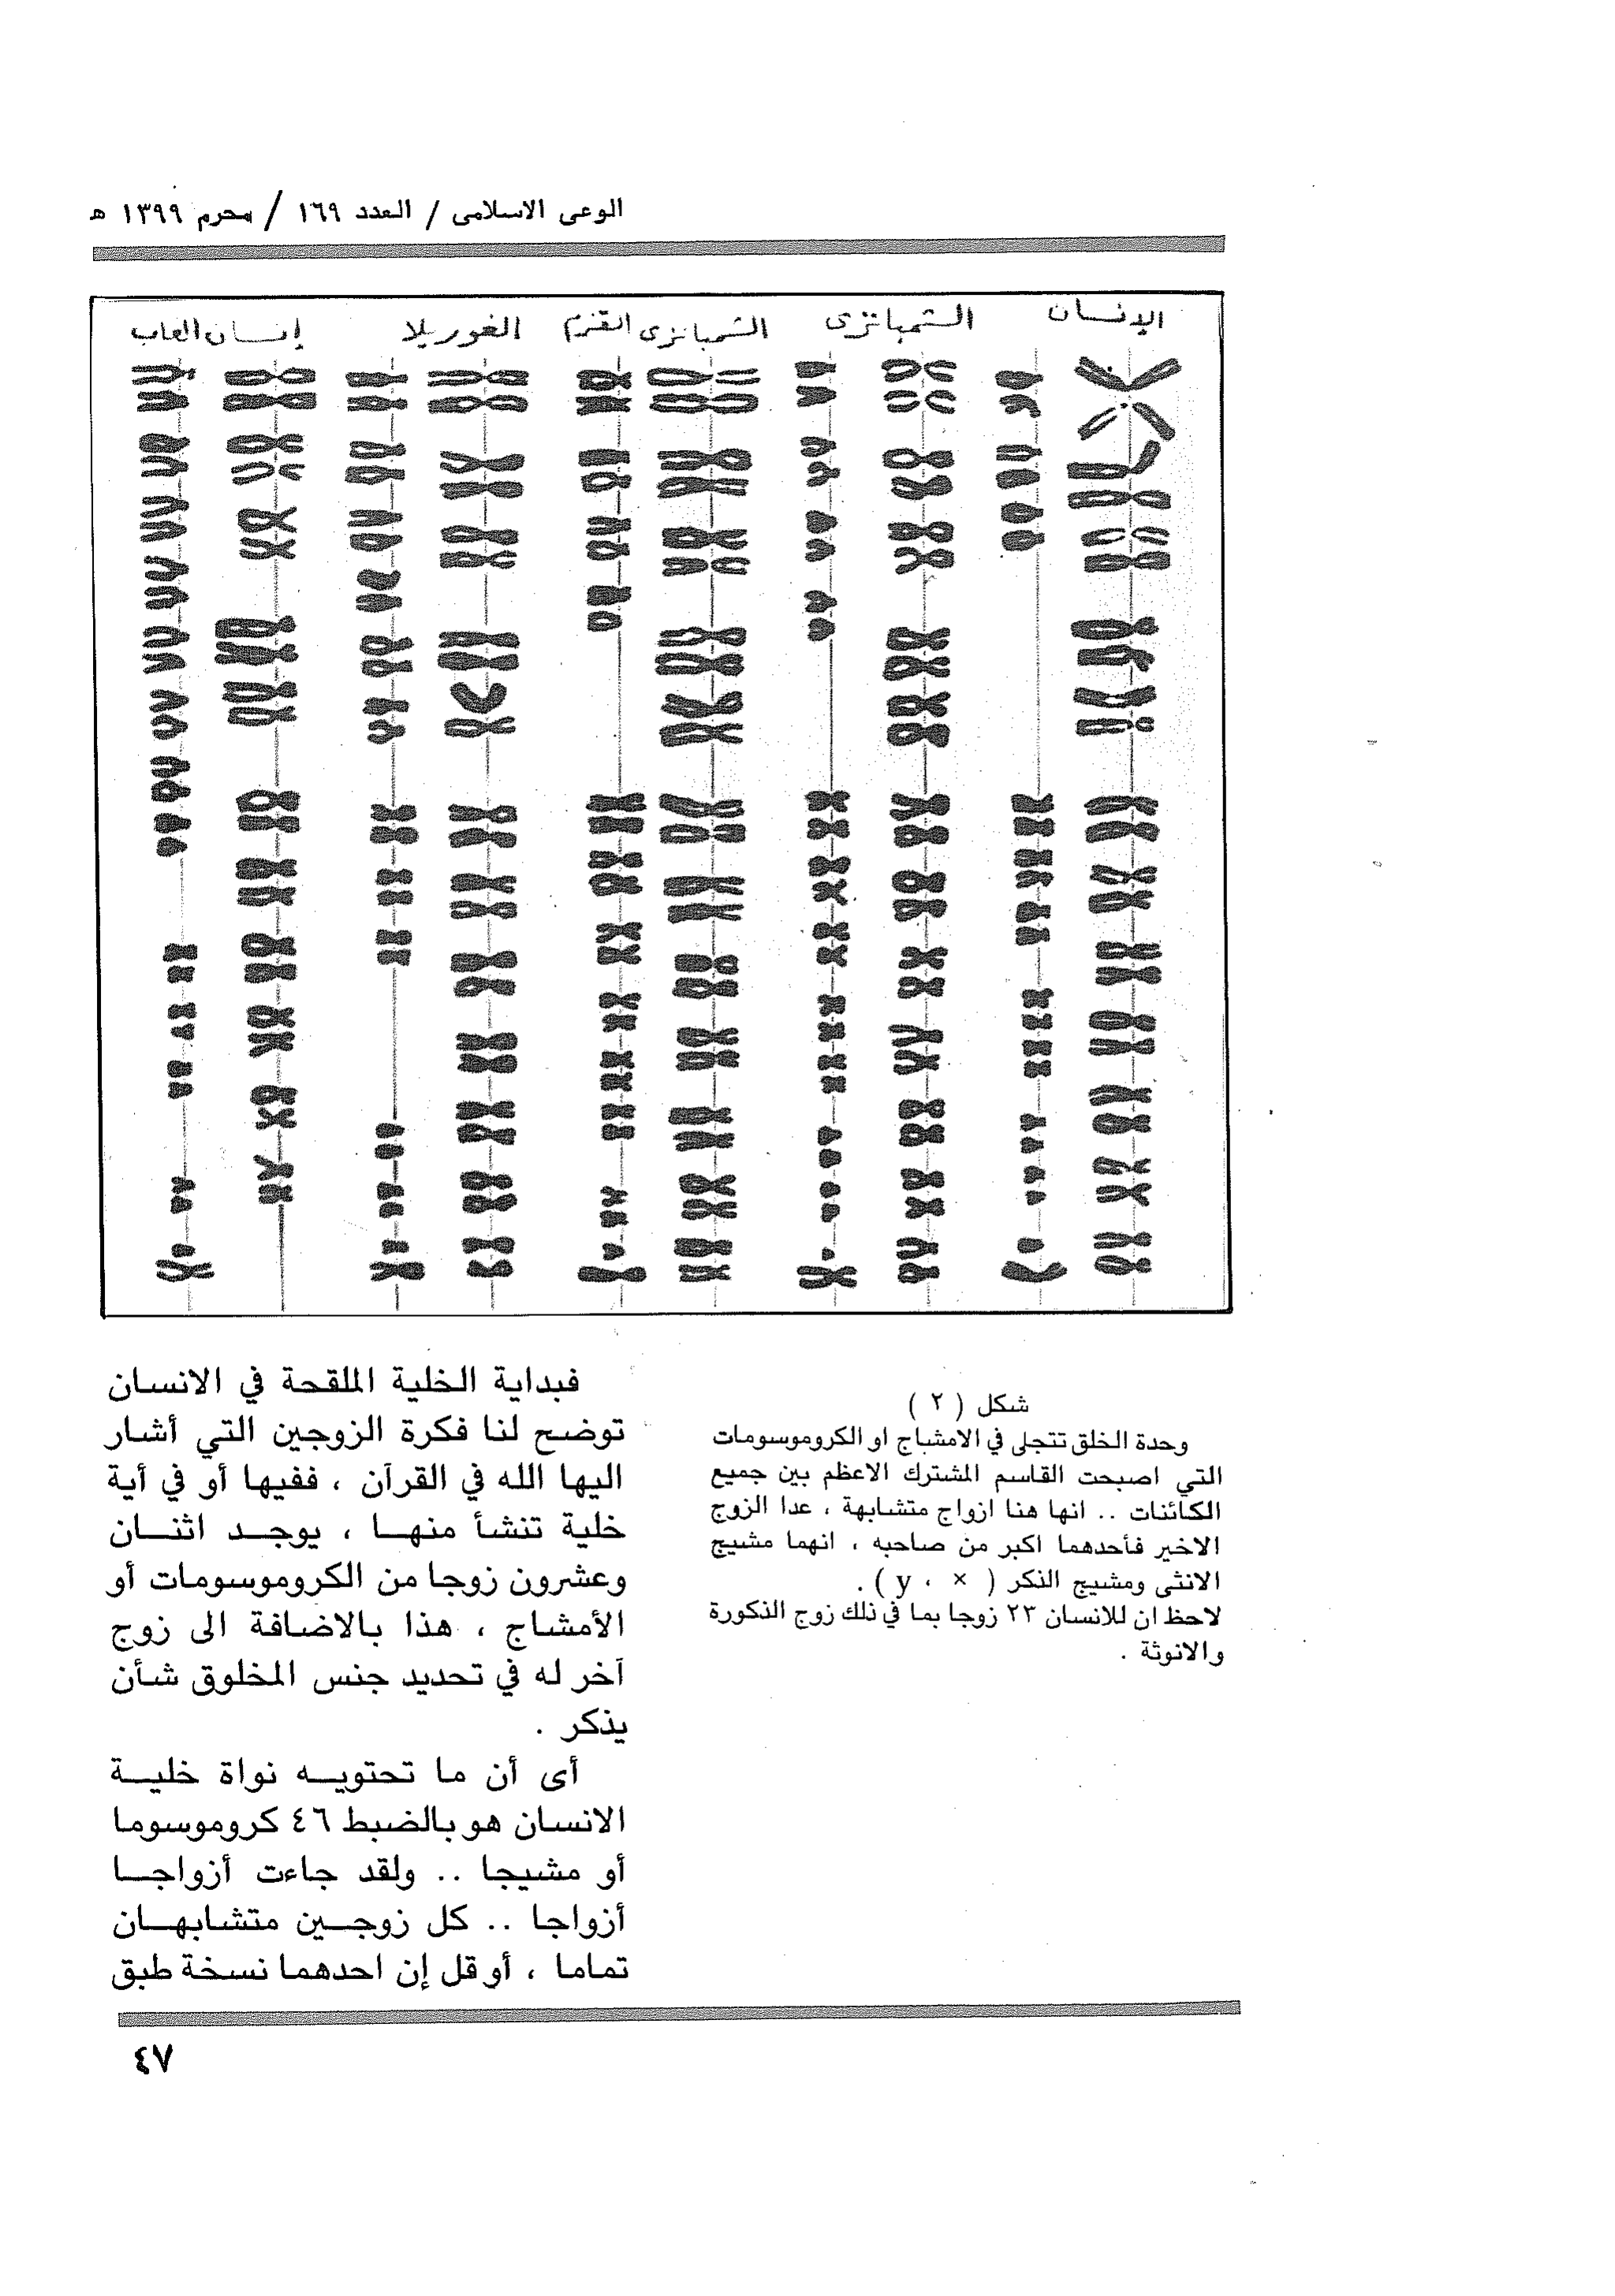 الوعى الاسلامى / العدد ١٦٩ / محرم ١٣٩٩ هـ
الإنسان
الشمبانزى
الشمبانزى القزم
الغوريلا
إنسان الغاب
شكل ( ٢ )
وحدة الخلق تتجلى في الامشاج او الكروموسومات
التي اصبحت القاسم المشترك الاعظم بين جميع
الكائنات .. انها هنا ازواج متشابهة ، عدا الزوج
الاخير فأحدهما اكبر من صاحبه ، انهما مشيج
الانثى ومشيج الذكر ( × ، y ) .
لاحظ ان للانسان ٢٣ زوجا بما في ذلك زوج الذكورة
والانوثة .
فبداية الخلية الملقحة في الانسان
توضح لنا فكرة الزوجين التي أشار
اليها الله في القرآن ، ففيها أو في أية
خلية تنشأ منهـا ، يوجـد اثنـان
وعشرون زوجا من الكروموسومات أو
الأمشاج ، هذا بالاضافة الى زوج
آخر له في تحديد جنس المخلوق شأن
يذكر .
أى أن ما تحتويـه نواة خليـة
الانسان هو بالضبط ٤٦ كروموسوما
أو مشيجا .. ولقد جاءت أزواجـا
أزواجا .. كل زوجـين متشابهـان
تماما ، أو قل إن احدهما نسخة طبق
٤٧